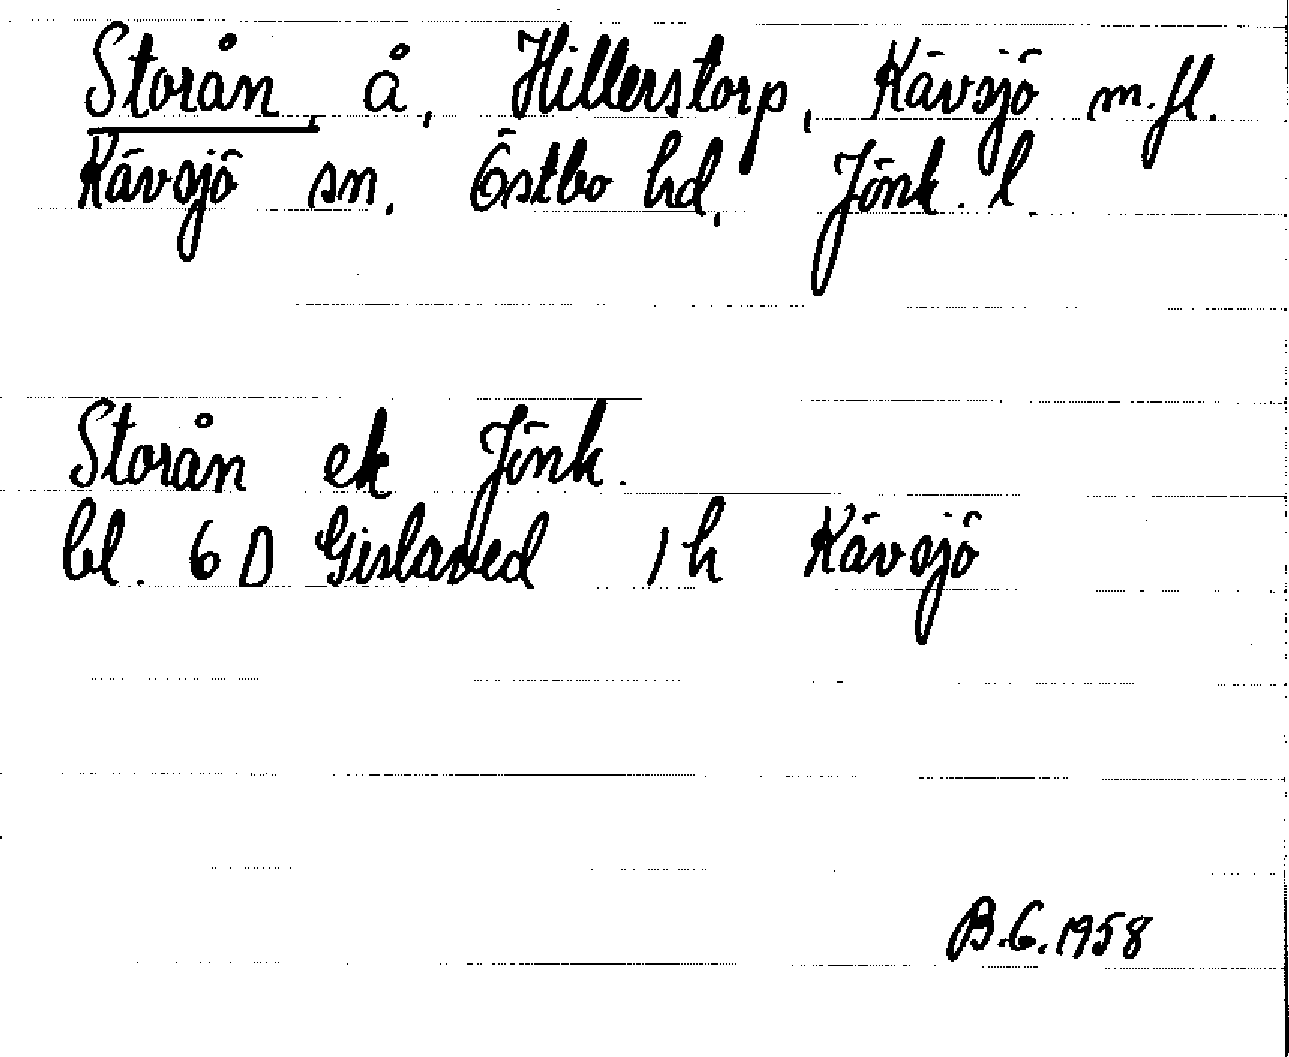 Storån, å, Hillerstorp, Kävsjö m.fl.
Kävsjö sn. Östbo hd, Jönk. l.
Storån ek Jönk.
bl. 6 D Gislaved 1 h Kävsjö
B.G. 1958